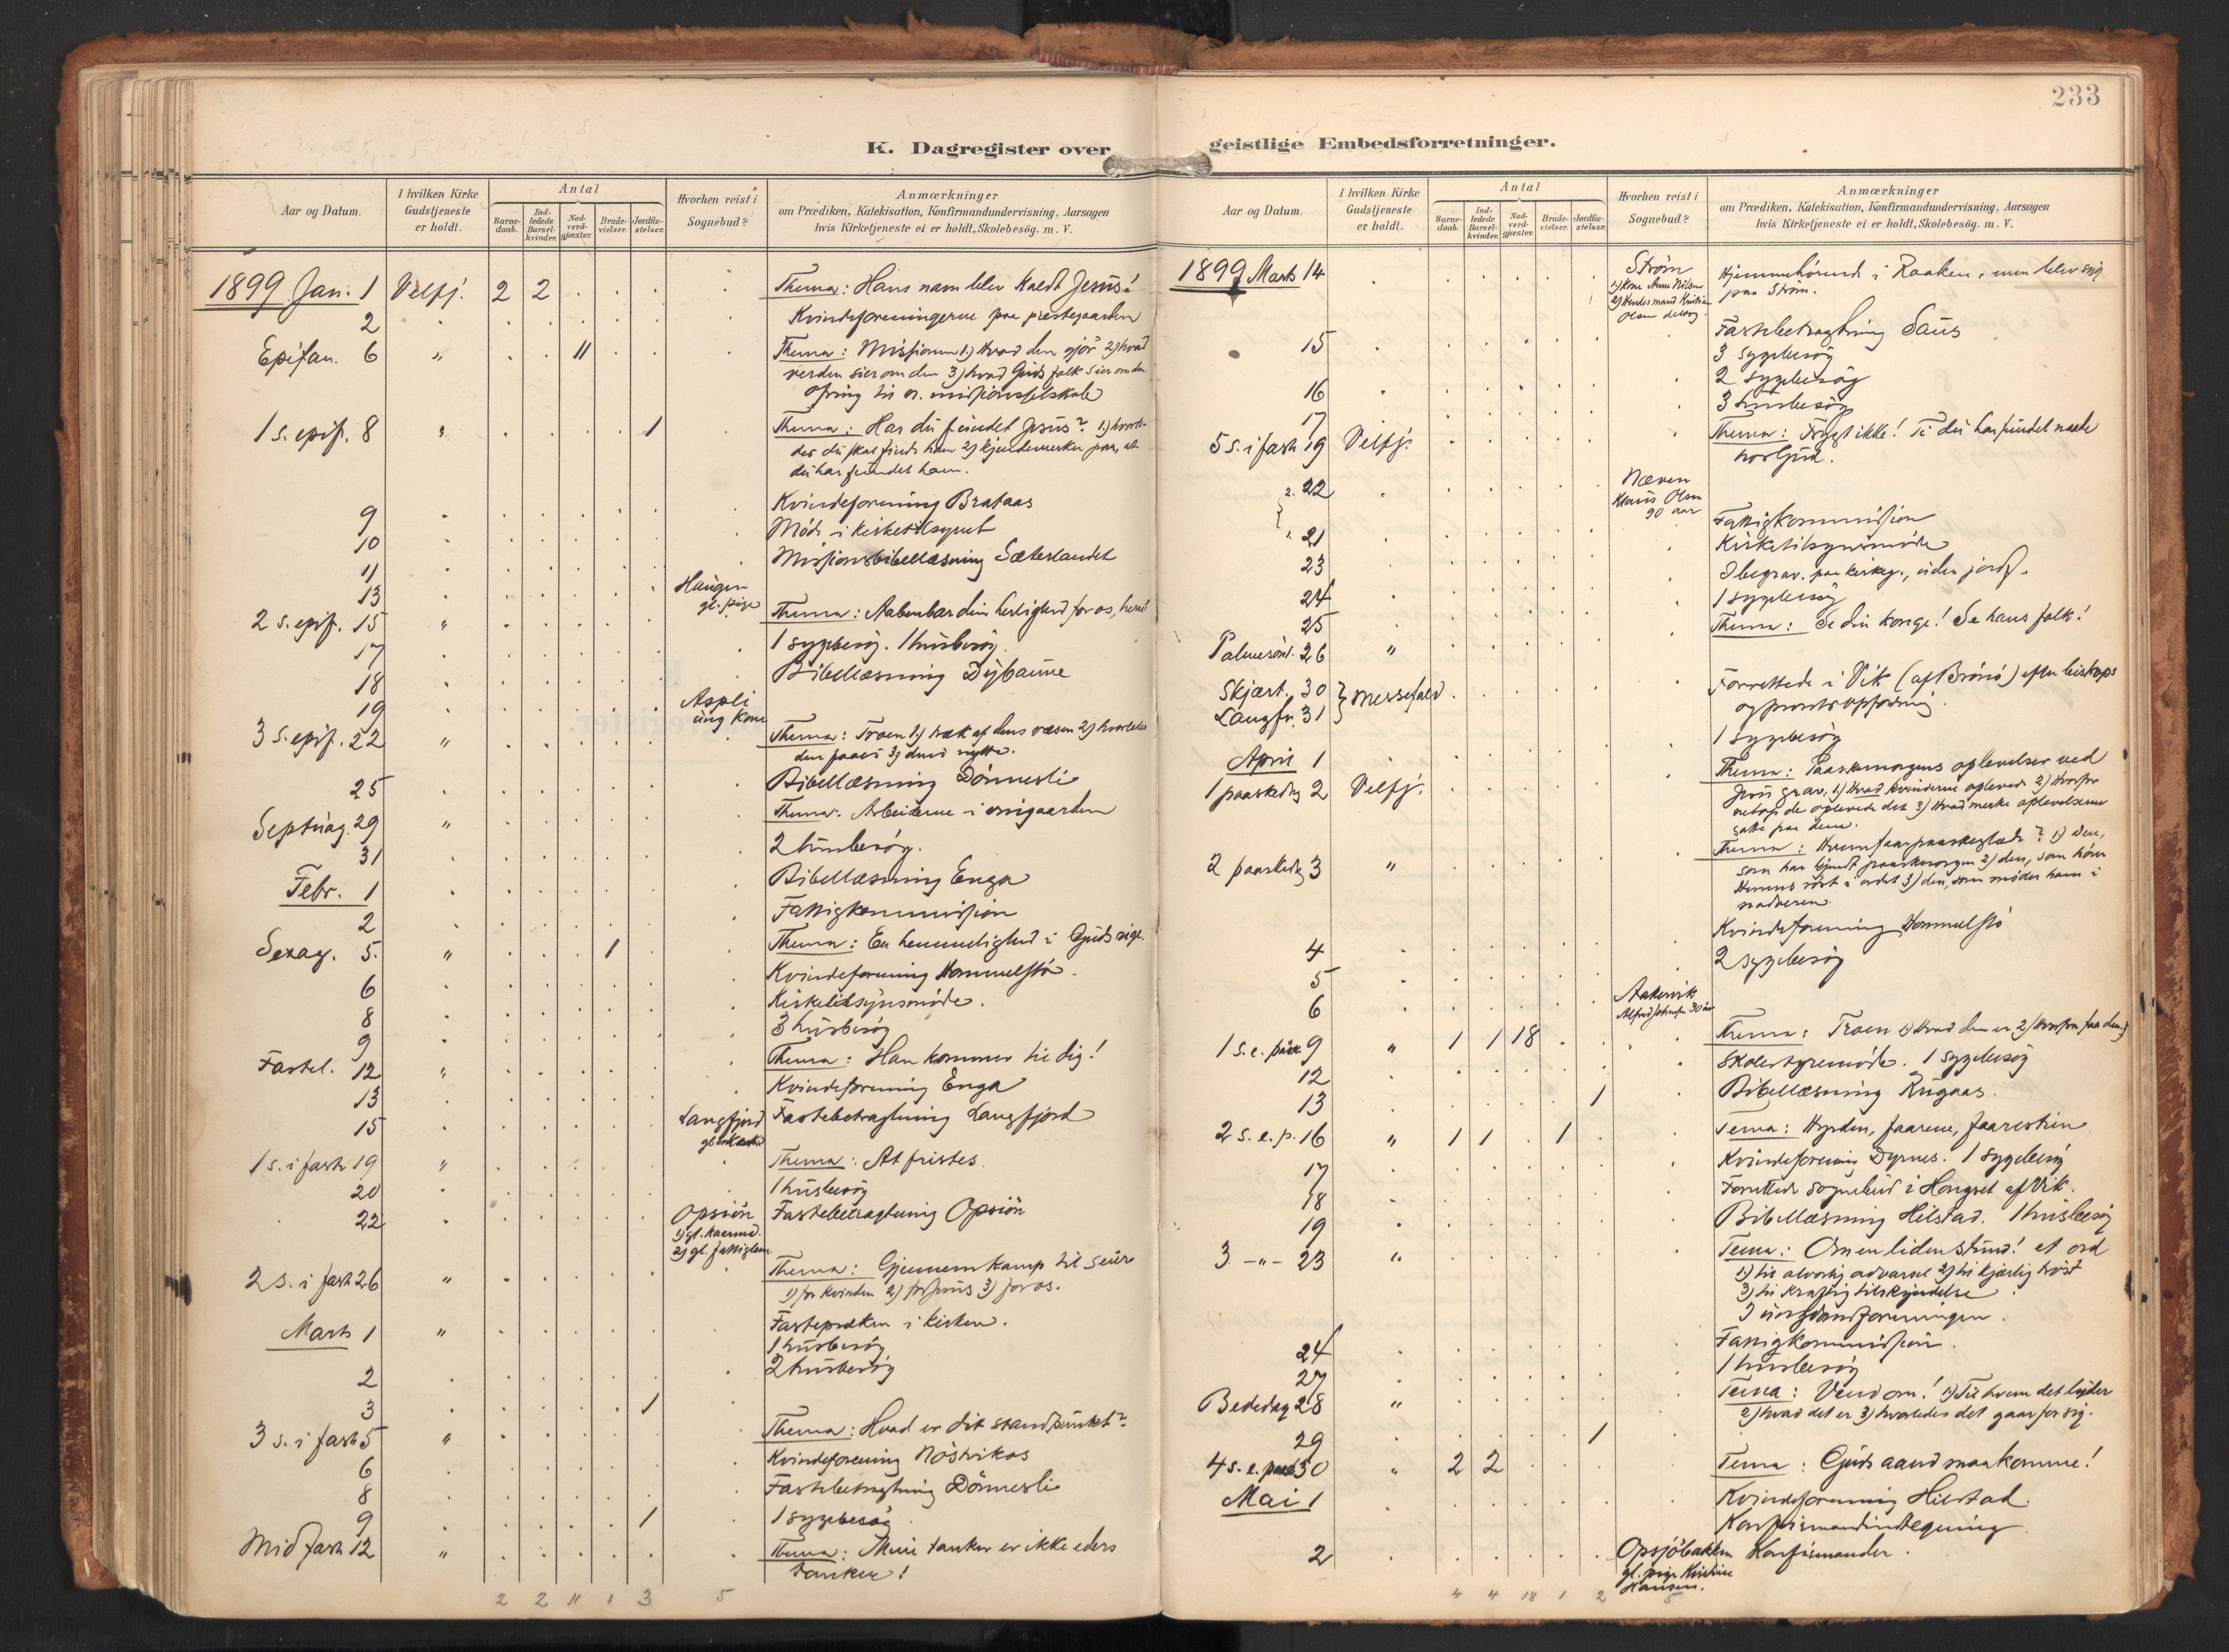 K. Dagregister over
Aar og Datum.
I hvilken Kirke Gudstjeneste er holdt.
Antal
Barne-daab.
Ind-ledede Barsel-kvinder.
Nad-verd-gjæster.
Brude-vielser.
Jordfæ-stelser.
Hvorhen reist i Sognebud?
Anmærkninger
om Prædiken, Katekisation, Konfirmandundervisning, Aarsagen
hvis Kirketjeneste ei er holdt, Skolebesög. m. V.
1899 Jan. 1 Velfj. 2 2 . . . . Thema: Hans navn blev kaldt Jesus!
2 Kvindeforeningerne paa prestegaarden
Epifan. 6 " . . 11 . . . Thema: Missionen 1) Hvad den gjør 2) hvad
verden sier om den 3) hvad Guds folk sier om den
Ofring til n. missionsselskab
1 s. epif. 8 " . . . . 1 Thema: Har du fundet Jesus? 1) hvorle-
des du skal finde ham 2) kjendemerker paa, at
du har fundet ham.
9 Kvindeforening Brataas
10 Møde i kirketilsynet
11 Missionsbibellæsning Sæterlandet
13 Haugen
gl. pige
2 s. epif. 15 " Thema: Aabenbar din herlighed for os, herre!
17 1 sygebesøg. 1 husbesøg.
18 Bibellæsning Dybaune
19 Aspli
ung kone
3 s. epif. 22 " Thema: Troen 1) træk af dens væsen 2) hvorledes
den faaes 3) dens nytte.
25 Bibellæsning Dønnesli
Septuag. 29 " Thema: Arbeiderne i vingaarden
31 2 husbesøg.
Febr. 1 Bibellæsning Enga
2 Fattigkommission
Sexag. 5. " 1 Thema: En hemmelighed i Guds rige.
6 Kvindeforening Hommelstø.
8 Kirketilsynsmøde.
9 3 husbesøg
Fastel. 12 " Thema: Han kommer til dig!
13 Kvindeforening Enga
15 Langfjord Fastebetragtning Langfjord
1 s. i faste 19 " Thema: At fristes.
20 1 husbesøg
22 Opsiøn Fastebetragtning Opsiøn
1) gl. kaarmd.
2) gl. fattiglem
2 s. i fast 26 " Thema: Gjennem kamp til seier
1) for kvinden 2) for Jesus 3) for os.
Marts 1 " Fastepræken i kirken.
1 husbesøg
2 2 husbesøg
3 1
3 s. i fast 5 " Thema: Hvad er dit standpunkt?
6 Kvindeforening Nøstvikas
8 Fastebetragtning Dønnesli
9 1 1 sygebesøg
Midfast 12 " Thema: Mine tanker er ikke eders
tanker!
2 2 11 1 3 5
233
geistlige Embedsforretninger.
Aar og Datum.
I hvilken Kirke Gudstjeneste er holdt.
Antal
Barne-daab.
Ind-ledede Barsel-kvinder.
Nad-verd-gjæster.
Brude-vielser.
Jordfæ-stelser.
Hvorhen reist i Sognebud?
Anmærkninger
om Prædiken, Katekisation, Konfirmandundervisning, Aarsagen
hvis Kirketjeneste ei er holdt, Skolebesög. m. V.
1899 Marts 14 Strøm Hjemmehørende i Raaken, men blev syg
1) Kone Anne Nilsen paa Strøm.
2) Hendes mand Kristian
Olsen
15 Fastebetragtning Saus
3 sygebesøg
16 2 sygebesøg
17 3 husbesøg
5 s. i fast 19 Velfj. Thema: Frygt ikke! Ti du har fundet naade
hos Gud.
2. 22 Næven
Olsen
90 aar Fattigkommission
1. 21 Kirketilsynsmøde
23 Jbegrav. paa kirkeg., uden jordf.
24 1 sygebesøg
25
Palmesønd. 26 " Thema: Se din konge! Se hans folk!
Skjært. 30 } Messefald Forrettede i Vik (af Brønø) efter biskops
Langfr. 31 og provsts opfordring.
April 1 1 sygebesøg
1 paaskedag 2 Velfj. Thema: Paaskemorgens oplevelser ved
Jesu grav: 1) Hvad kvinderne oplevede 2) Hvorfor
netop de oplevede det 3) Hvad merke oplevelserne
satte paa dem.
2 paaskedag 3 " Thema: Hvem faar paaskeglæde? 1) Den,
som har begyndt paaskemorgen 2) den, som hører
Herrens røst i ordet 3) den, som møder ham i
nadveren.
4 Kvindeforening Hommelstø
5 2 sygebesøg
6 Aakervik
Alfred Johansen 30 aar
1 s. e. paask 9 " 1 1 18 Thema: Troen 1) Hvad den er 2) Hvorfra faa den?
12 Skolestyremøde. 1 sygebesøg
13 1 Bibellæsning Rugaas.
2 s. e. p. 16 " 1 1 . 1 Tema: Hyrden, faarene, faarestien
17 Kvindeforening Dyrnes. 1 sygebesøg
18 Forrettede sognebud i Hongset af Vik.
19 Bibellæsning Hilstad. 1 husbesøg
3 -"- 23 " Tema: Om en liden stund! et ord
1) til alvorlig advarsel 2) til kjærlig trøst
3) til kraftig tilskyndelse.
I ungdomsforeningen.
24 Fattigkommission.
27 1 husbesøg
Bededag 28 " Tema: Vend om! 1) Til hvem det lyder
2) hvad det er 3) hvorledes det gaar for sig.
29 1
4 s. e. paask 30 " 2 2 Tema: Guds aand maa komme!
Mai 1 Kvindeforening Hilstad.
Konfirmandindtegning
2 Opsjöbakken Konfirmander.
gl. pige Kristine
Hansen.
4 4 18 1 2 5